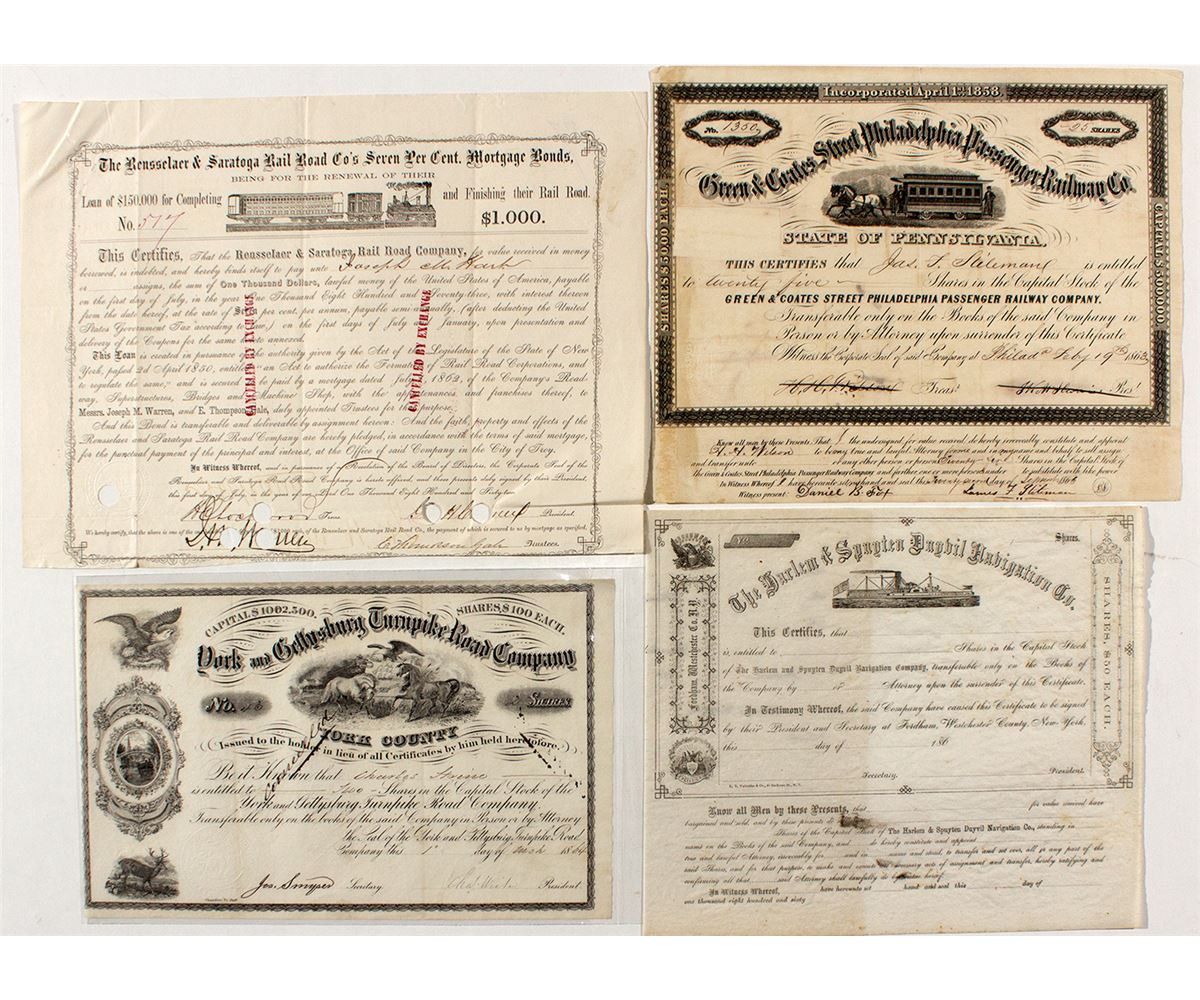 The Rensselaer & Saratoga Rail Road Co's Seven Per Cent. Mortgage Bonds,
BEING FOR THE RENEWAL OF THEIR
Loan of $150,000 for Completing and Finishing their Rail Road.
No. 517 $1.000.
This Certifies, That the Rensselaer & Saratoga Rail Road Company, for value received in money
borrowed, is indebted, and hereby binds itself to pay unto Joseph M.
or assigns, the sum of One Thousand Dollars, lawful money of the United States of America, payable
on the first day of July, in the year One Thousand Eight Hundred and Seventy-three, with interest thereon
from the date hereof, at the rate of Seven per cent. per annum, payable semi-annually, (after deducting the United
States Government Tax according to law,) on the first days of July and January, upon presentation and
delivery of the Coupons for the same hereto annexed.
This Loan is created in pursuance of the authority given by the Act of the Legislature of the State of New
York, passed 2d April 1850, entitled an Act to authorize the Formation of Rail Road Corporations, and
to regulate the same," and is secured to be paid by a mortgage dated July, 1863, of the Company's Road-
way, Superstructures, Bridges and Machine Shop, with the appurtenances, and franchises thereof, to
Messrs. Joseph M. Warren, and E. Thompson Gale, duly appointed Trustees for this purpose.
And this Bond is transferable and deliverable by assignment hereon: And the faith, property and effects of the
Rensselaer and Saratoga Rail Road Company are hereby pledged, in accordance with the terms of said mortgage,
for the punctual payment of the principal and interest, at the Office of said Company in the City of Troy.
In Witness Whereof, and in pursuance of a Resolution of the Board of Directors, the Corporate Seal of the
Rensselaer and Saratoga Rail Road Company is hereto affixed, and these presents duly signed by their President,
this first day of July, in the year of our Lord One Thousand Eight Hundred and
Treas President.
We hereby certify, that the above is one of the Bonds of the Rensselaer and Saratoga Rail Road Co., the payment of which is secured to us by mortgage as specified.
E Thompson Gale Trustees.
CANCELLED BY EXCHANGE
CANCELLED BY EXCHANGE
Incorporated April 1st 1858
No. 1350 25 SHARES
Green & Coates Street Philadelphia Passenger Railway Co.
SHARES $50.00 EACH.
CAPITAL $500.000.
STATE OF PENNSYLVANIA.
THIS CERTIFIES that Jas. F. Stileman is entitled
to twenty five Shares in the Capital Stock of the
GREEN & COATES STREET PHILADELPHIA PASSENGER RAILWAY COMPANY.
Transferable only on the Books of the said Company in
Person or by Attorney upon surrender of this Certificate
Witness the Corporate Seal of said Company at Philada Feby 19th 1863
Treas. Pres.
Know all men by these Presents, That I the undersigned for value received, do hereby irrevocably constitute and appoint
my true and lawful Attorney for me and in my name and behalf to sell assign
and transfer unto or any other person or persons Twenty five Shares in the Capital Stock of
The Green & Coates Street Philadelphia Passenger Railway Company and further, one or more persons under to substitute with like power
In Witness Whereof I have hereunto set my hand and seal this day of
Witness present: Daniel B. Fox James F. Stileman
CAPITAL $1002,500. SHARES, $100 EACH.
York and Gettysburg Turnpike Road Company
No. SHARES
YORK COUNTY
Issued to the holder in lieu of all Certificates by him held heretofore.
Cancelled
Be it Known that Charles
is entitled to Two Shares in the Capital Stock of the
York and Gettysburg Turnpike Road Company.
Transferable only on the books of the said Company in Person or by Attorney
the Seal of the York and Gettysburg Turnpike Road
Company this 1st day of 1864
Jos. Smyser Secretary President.
No. Shares.
The Harlem & Spuyten Duyvil Navigation Co.
Fordham, Westchester Co. N.Y.
SHARES $50 EACH.
This Certifies, that
is entitled to Shares in the Capital Stock
of The Harlem and Spuyten Duyvil Navigation Company, transferable only on the Books of
the Company by or Attorney upon the surrender of this Certificate.
In Testimony Whereof, the said Company have caused this Certificate to be signed
by their President and Secretary at Fordham, Westchester County, New-York,
this day of 186
Secretary. President.
Know all Men by these Presents, that for value received have
bargained and sold, and by these presents do
Shares of the Capital Stock of The Harlem & Spuyten Duyvil Navigation Co., standing in
name on the Books of the said Company, and do hereby constitute and appoint
true and lawful Attorney, irrevocably for and in name and stead, to transfer and set over, all or any part of the
said Shares, and for that purpose, to make and execute all necessary acts of assignment and transfer, hereby ratifying and
confirming all that said Attorney shall lawfully do by virtue hereof.
In Witness Whereof, have hereunto set hand and seal this day of
one thousand eight hundred and sixty